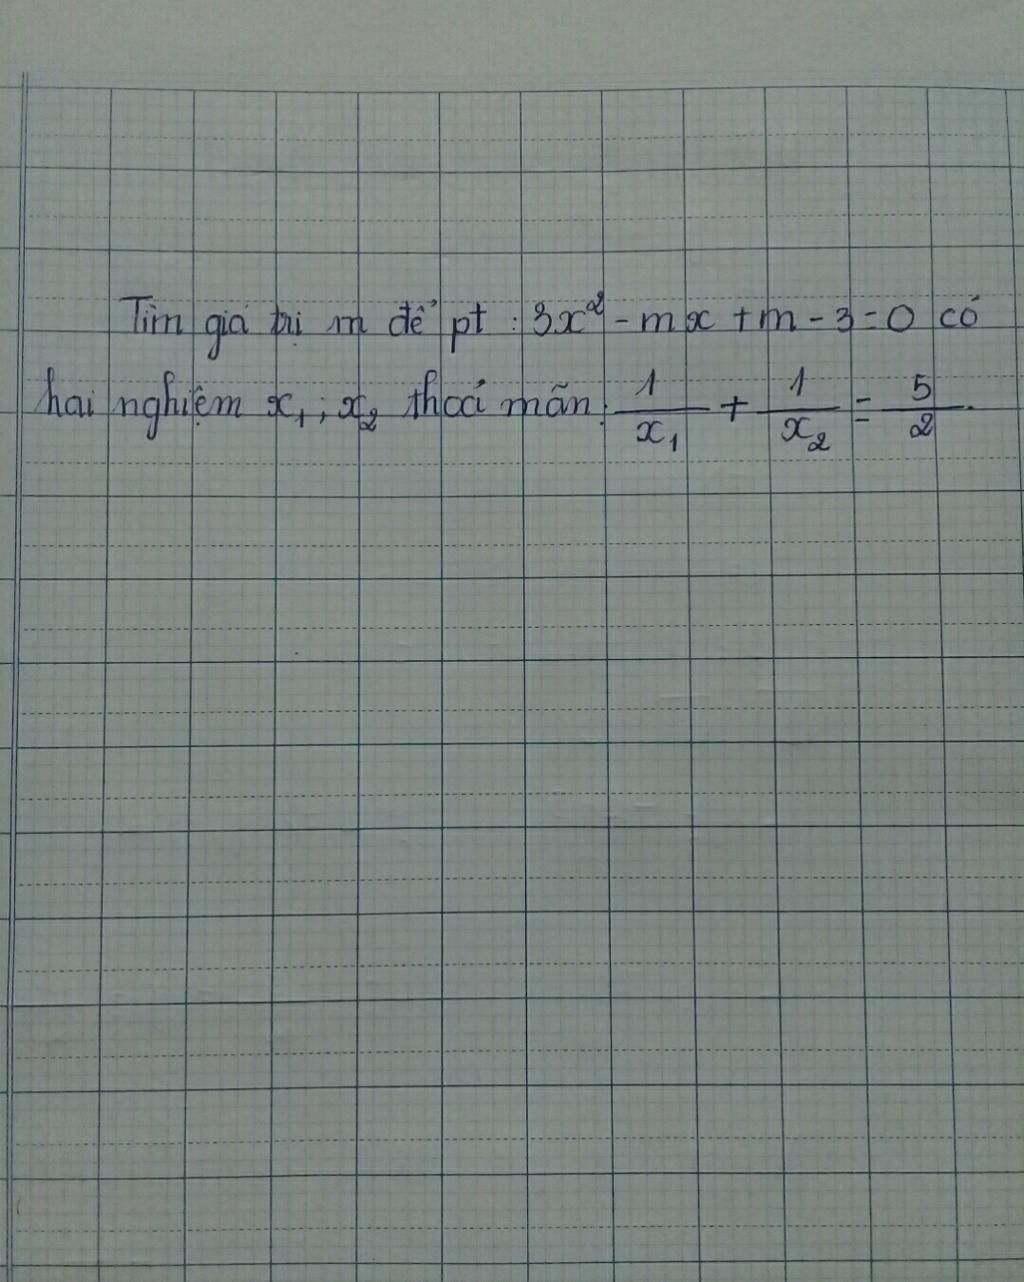 Tìm giá trị m để pt : 3x² - mx + m - 3 = 0 có
hai nghiệm x₁ ; x₂ thoả mãn: 1/x₁ + 1/x₂ = 5/2.